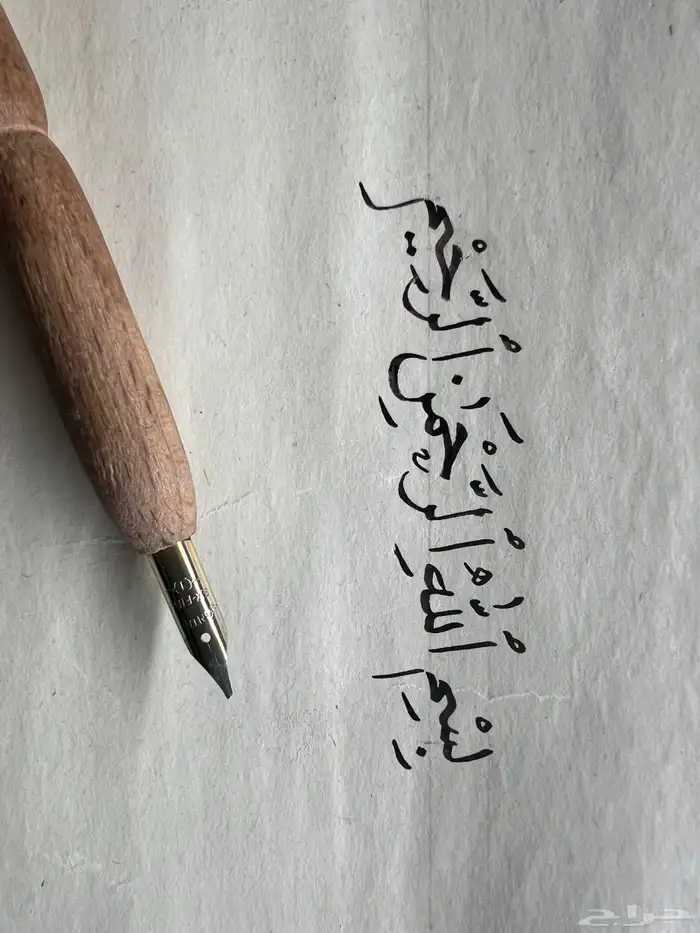 بِسْمِ ٱللَّهِ ٱلرَّحْمَٰنِ ٱلرَّحِيمِ
حراج